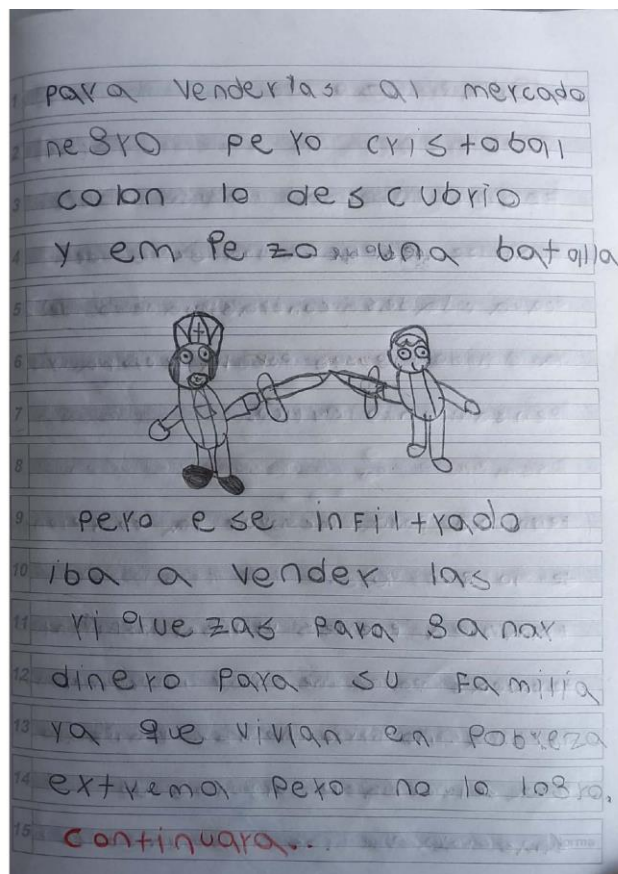 para venderlas al mercado
negro pero cristobal
colon lo descubrio
y empezo una batalla
pero ese infiltrado
iba a vender las
riquezas para ganar
dinero para su familia
ya que vivian en pobreza
extrema pero no lo logro.
continuara..